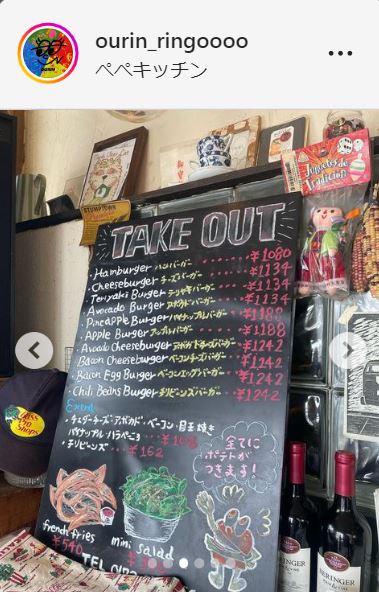 ourin_ringoooo
ぺぺキッチン
TAKE OUT
Juguetes de
Tradición
STUMPTOWN
・Hamburger ハンバーガー ・・・・・ ¥1080
・Cheeseburger チーズバーガー ・・・・ ¥1134
・Teriyaki Burger テリヤキバーガー ・・・ ¥1134
・Avocado Burger アボカドバーガー ・・・ ¥1134
・Pineapple Burger パイナップルバーガー ・・ ¥1188
・Apple Burger アップルバーガー ・・・・ ¥1188
・Avocado Cheeseburger アボカドチーズバーガー ・・ ¥1242
・Bacon Cheeseburger ベーコンチーズバーガー ・・ ¥1242
・Bacon Egg Burger ベーコンエッグバーガー ・・ ¥1242
・Chili Beans Burger チリビーンズバーガー ・・ ¥1242
・チェダーチーズ・アボカド・ベーコン・目玉焼き
パイナップル・ハラペーニョ ・・・
・チリビーンズ ・・・ ¥162
全てに
ポテトが
つきます!
Bass
Pro
Shops
french fries
¥540
mini salad
TEL
BERINGER
BERINGER